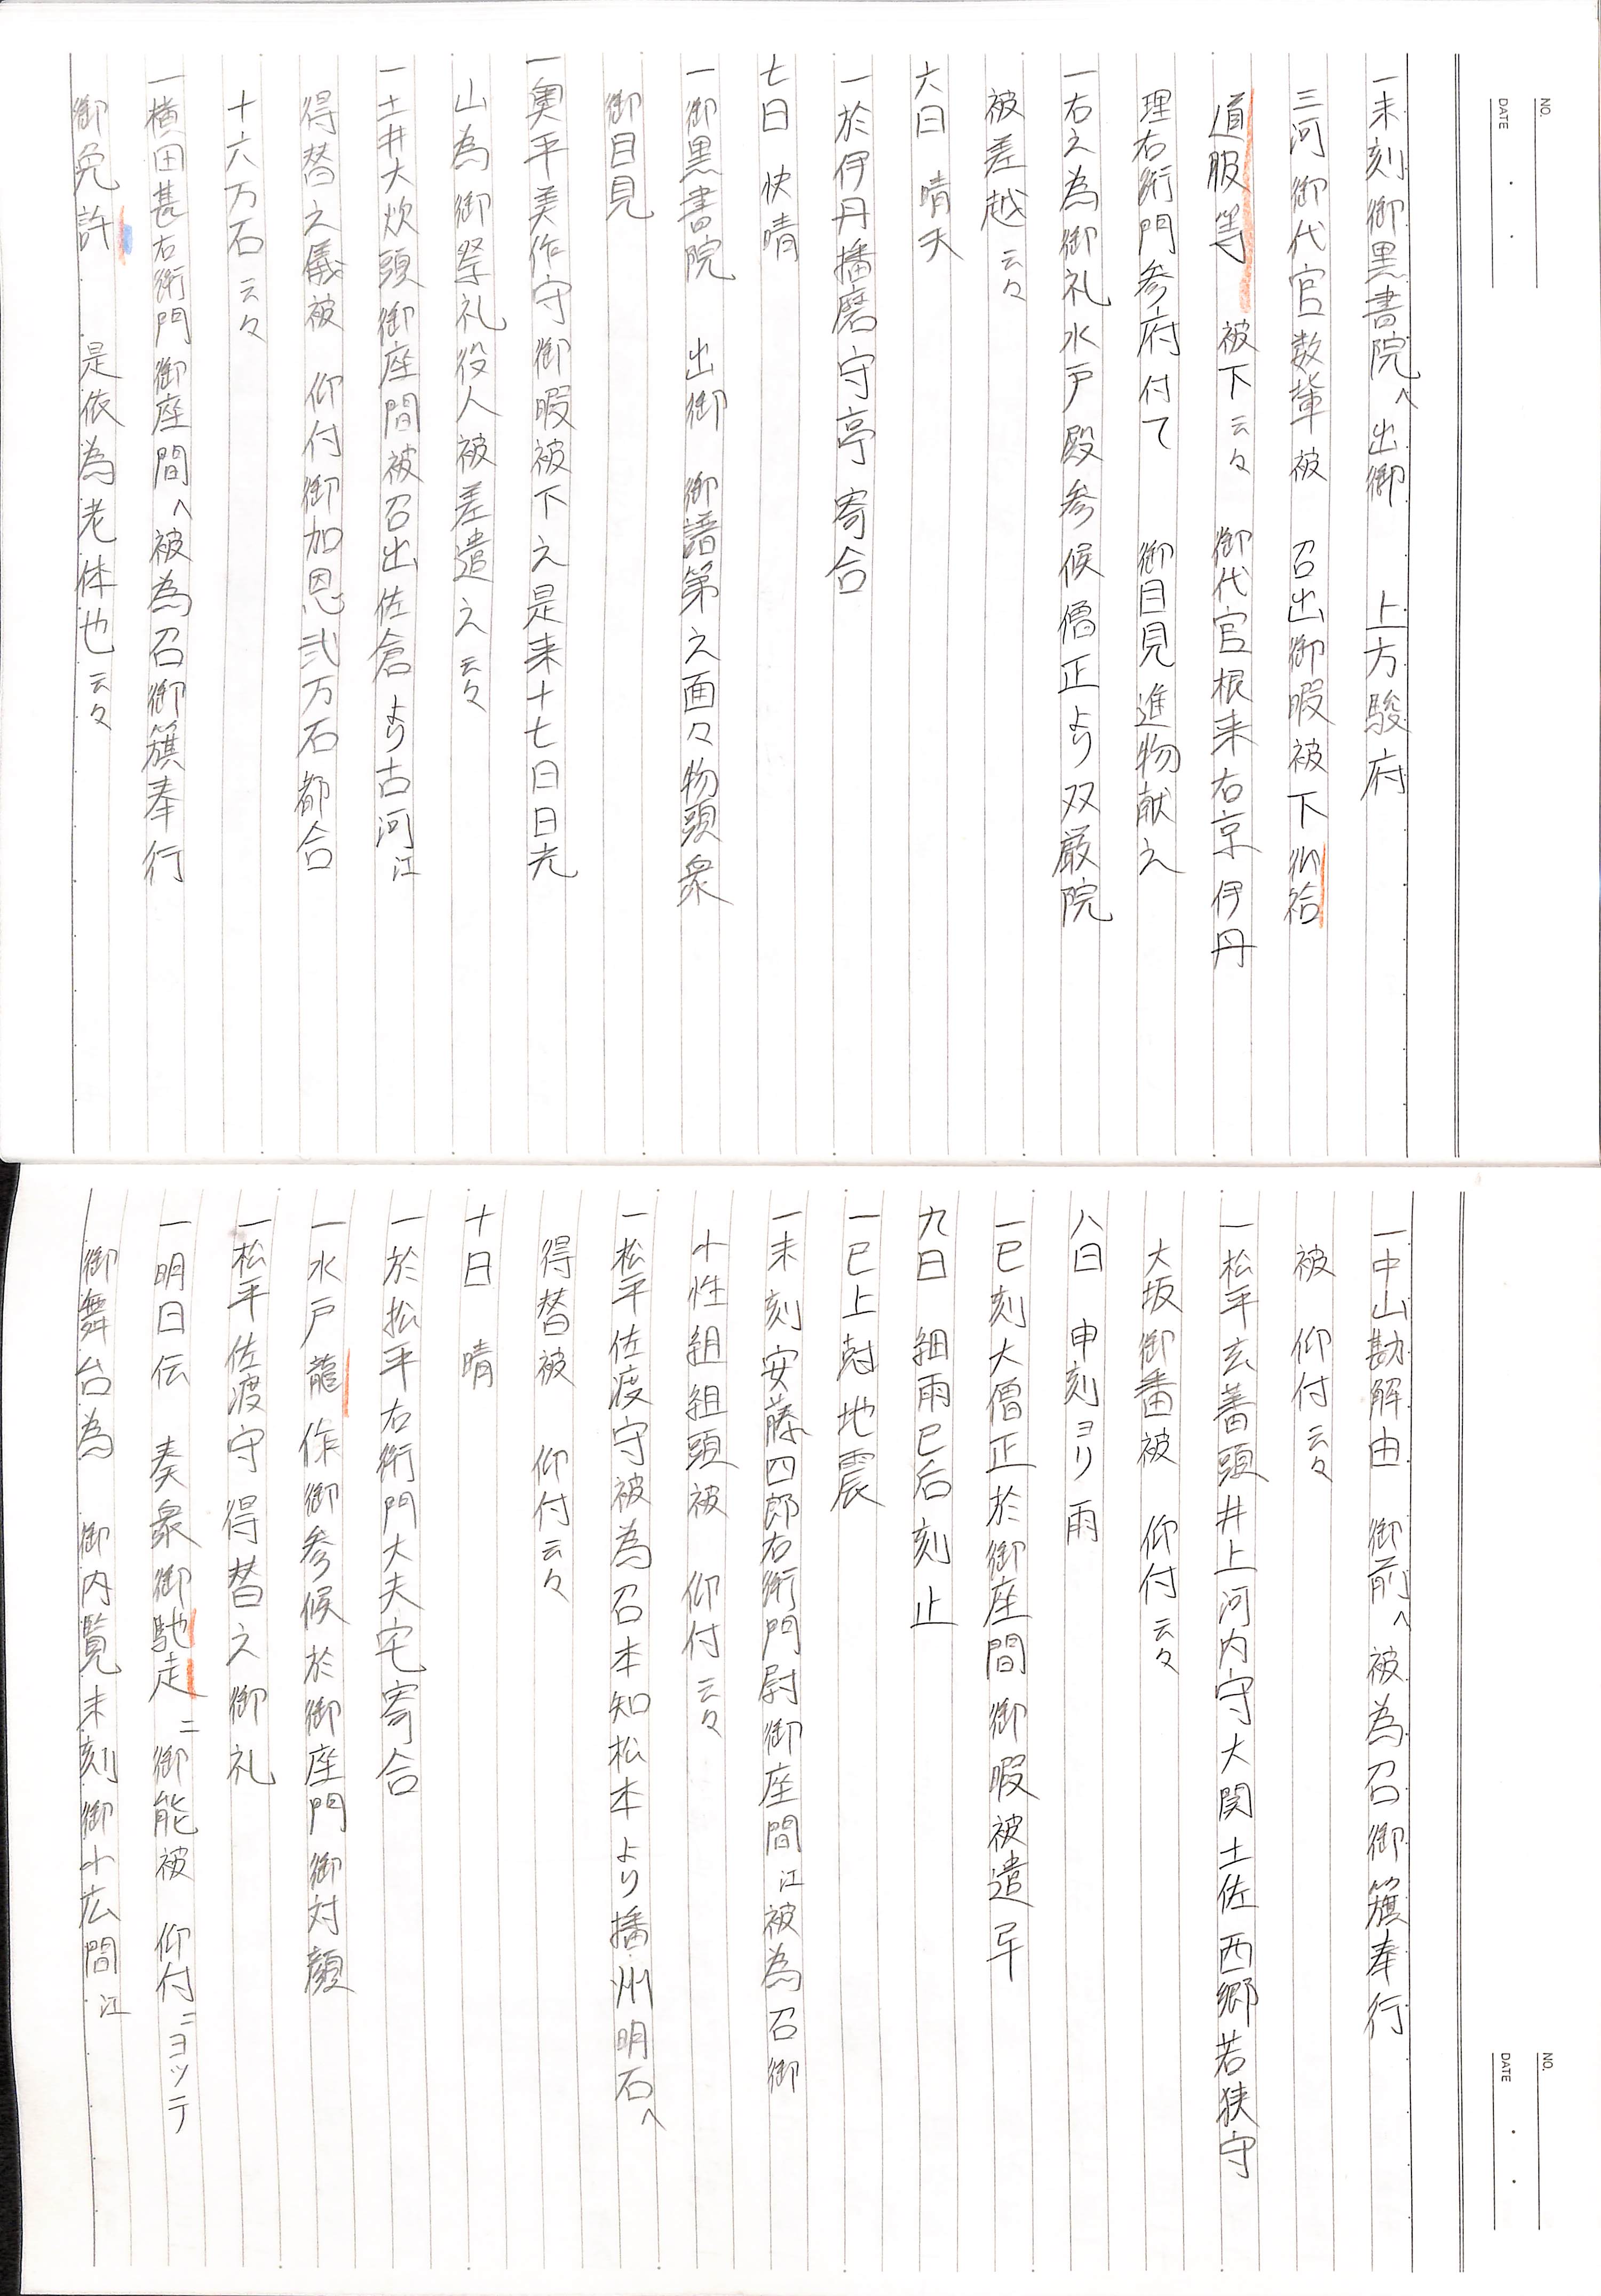 NO.
DATE
一未刻御黒書院へ出御　上方駿府
三河御代官数輩被　召出御暇被下御袷
道服等　被下云々　御代官根来右京伊丹
理右衛門参府付て　御目見進物献之
一右之為御礼水戸殿参候僧正より双厳院
被差越云々
六日　晴天
一於伊丹播磨守亭寄合
七日　快晴
一御黒書院　出御　御譜第之面々物頭衆
御目見
一奥平美作守御暇被下之是来十七日日光
山為御祭礼役人被差遣之云々
一土井大炊頭御座間被召出佐倉より古河江
得替之儀被　仰付御加恩弐万石都合
十六万石云々
一横田甚右衛門御座間へ被為召御籏奉行
御免許　是依為老体也云々
NO.
DATE
一中山勘解由　御前へ被為召御籏奉行
被　仰付云々
一松平玄蕃頭井上河内守大関土佐西郷若狭守
大坂御番被　仰付云々
八日　申刻ヨリ雨
一巳刻大僧正於御座間御暇被遣畢
九日　細雨巳后刻止
一巳上尅地震
一未刻安藤四郎右衛門尉御座間江被為召御
小性組組頭被　仰付云々
一松平佐渡守被為召本知松本より播州明石へ
得替被　仰付云々
十日　晴
一於松平右衛門大夫宅寄合
一水戸龍作御参候於御座門御対顔
一松平佐渡守得替之御礼
一明日伝　奏衆御馳走ニ御能被　仰付ニヨツテ
御舞台為　御内覧未刻御小広間江